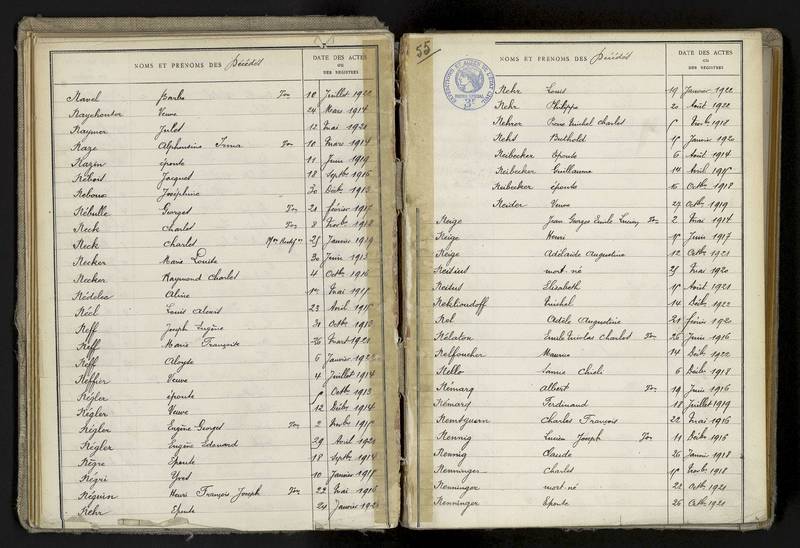 NOMS ET PRÉNOMS DES Décédés
DATE DES ACTES
OU
DES REGISTRES
Ravel Barbe 10 Juillet 1922
Veuve 24 Mars 1914
Raymer Jules 12 Mai 1921
Raze Alphonsine Irma 10 Mars 1914
Razin épouse 11 Juin 1919
Rebois Jacques 18 Septbre 1915
Reboux Joséphine
Rébulle Georges 21 février
Reck Charles 8 Novbre 1918
Reck Charles 25 Janvier 1919
Recker Marie Louise 30 Juin 1913
Recker Raymond Charles 4 Octbre 1916
Rédelec Aline Mai
Réel Louis Alexis 23 Avril
Reff Joseph Eugène 31 Octbre
Reff Marie Françoise 26 Mars 1921
Reff Aloyse 6 Janvier
Reffier Veuve 4 Juillet 1914
Régler épouse Octbre 1913
Régler Veuve 12 Décbre 1914
Régler Eugène Georges 2 Novbre
Régler Eugène Edouard 29 Avril 1921
Règre Epouse 18 Septbre 1914
Régri Yves 10 Janvier
Réguin Henri François Joseph 22 Mai 1916
Rehr Epouse 24 Janvier
55
NOMS ET PRÉNOMS DES Décédés
DATE DES ACTES
OU
DES REGISTRES
3F
Rehr Louis 19 Janvier 1922
Rehr Philippe 20 Août 1922
Rehrer Pierre Michel Charles Novbre 1918
Rehs Berthold Janvier 1920
Reibecker Epouse 6 Août 1914
Reibecker Guillaume 14 Avril
Reibecker épouse 15 Octbre 1918
Reider Veuve 27 Octbre 1919
Reige Jean Georges Emile Lucien 2 Mai 1914
Reige Henri Juin 1917
Reige Adélaïde Augustine 12 Octbre 1921
mort-né 25 Mai 1920
Elisabeth Août 1921
Rekkioudoff Michel 14 Décbre 1922
Rel Adèle Augustine 21 février
Rélaton Emile Nicolas Charles 26 Juin 1916
Relfoucher Maurice 14 Décbre 1922
Rello 6 Décbre 1918
Rémarq Albert 19 Juin 1916
Rémarq Ferdinand 18 Juillet 1919
Charles François 22 Mai 1916
Rennig Lucien Joseph 11 Décbre 1916
Rennig Claude 26 Janvier 1918
Renninger Charles Novbre 1918
Renninger mort-né 22 Octbre 1921
Renninger Epouse 26 Octbre 1921